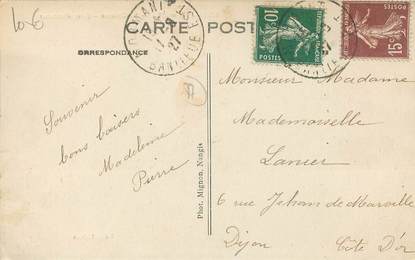 10-6
CARTE POSTALE
CORRESPONDANCE
BANLIEUE EST
27
10c
POSTES
15c
POSTES
Souvenir
bons baisers
Madeleine
Pierre
Phot. Mignon, Nangis
Monsieur Madame
Mademoiselle
Lanier
6 rue Jehan de Marville
Dijon Côte D'or